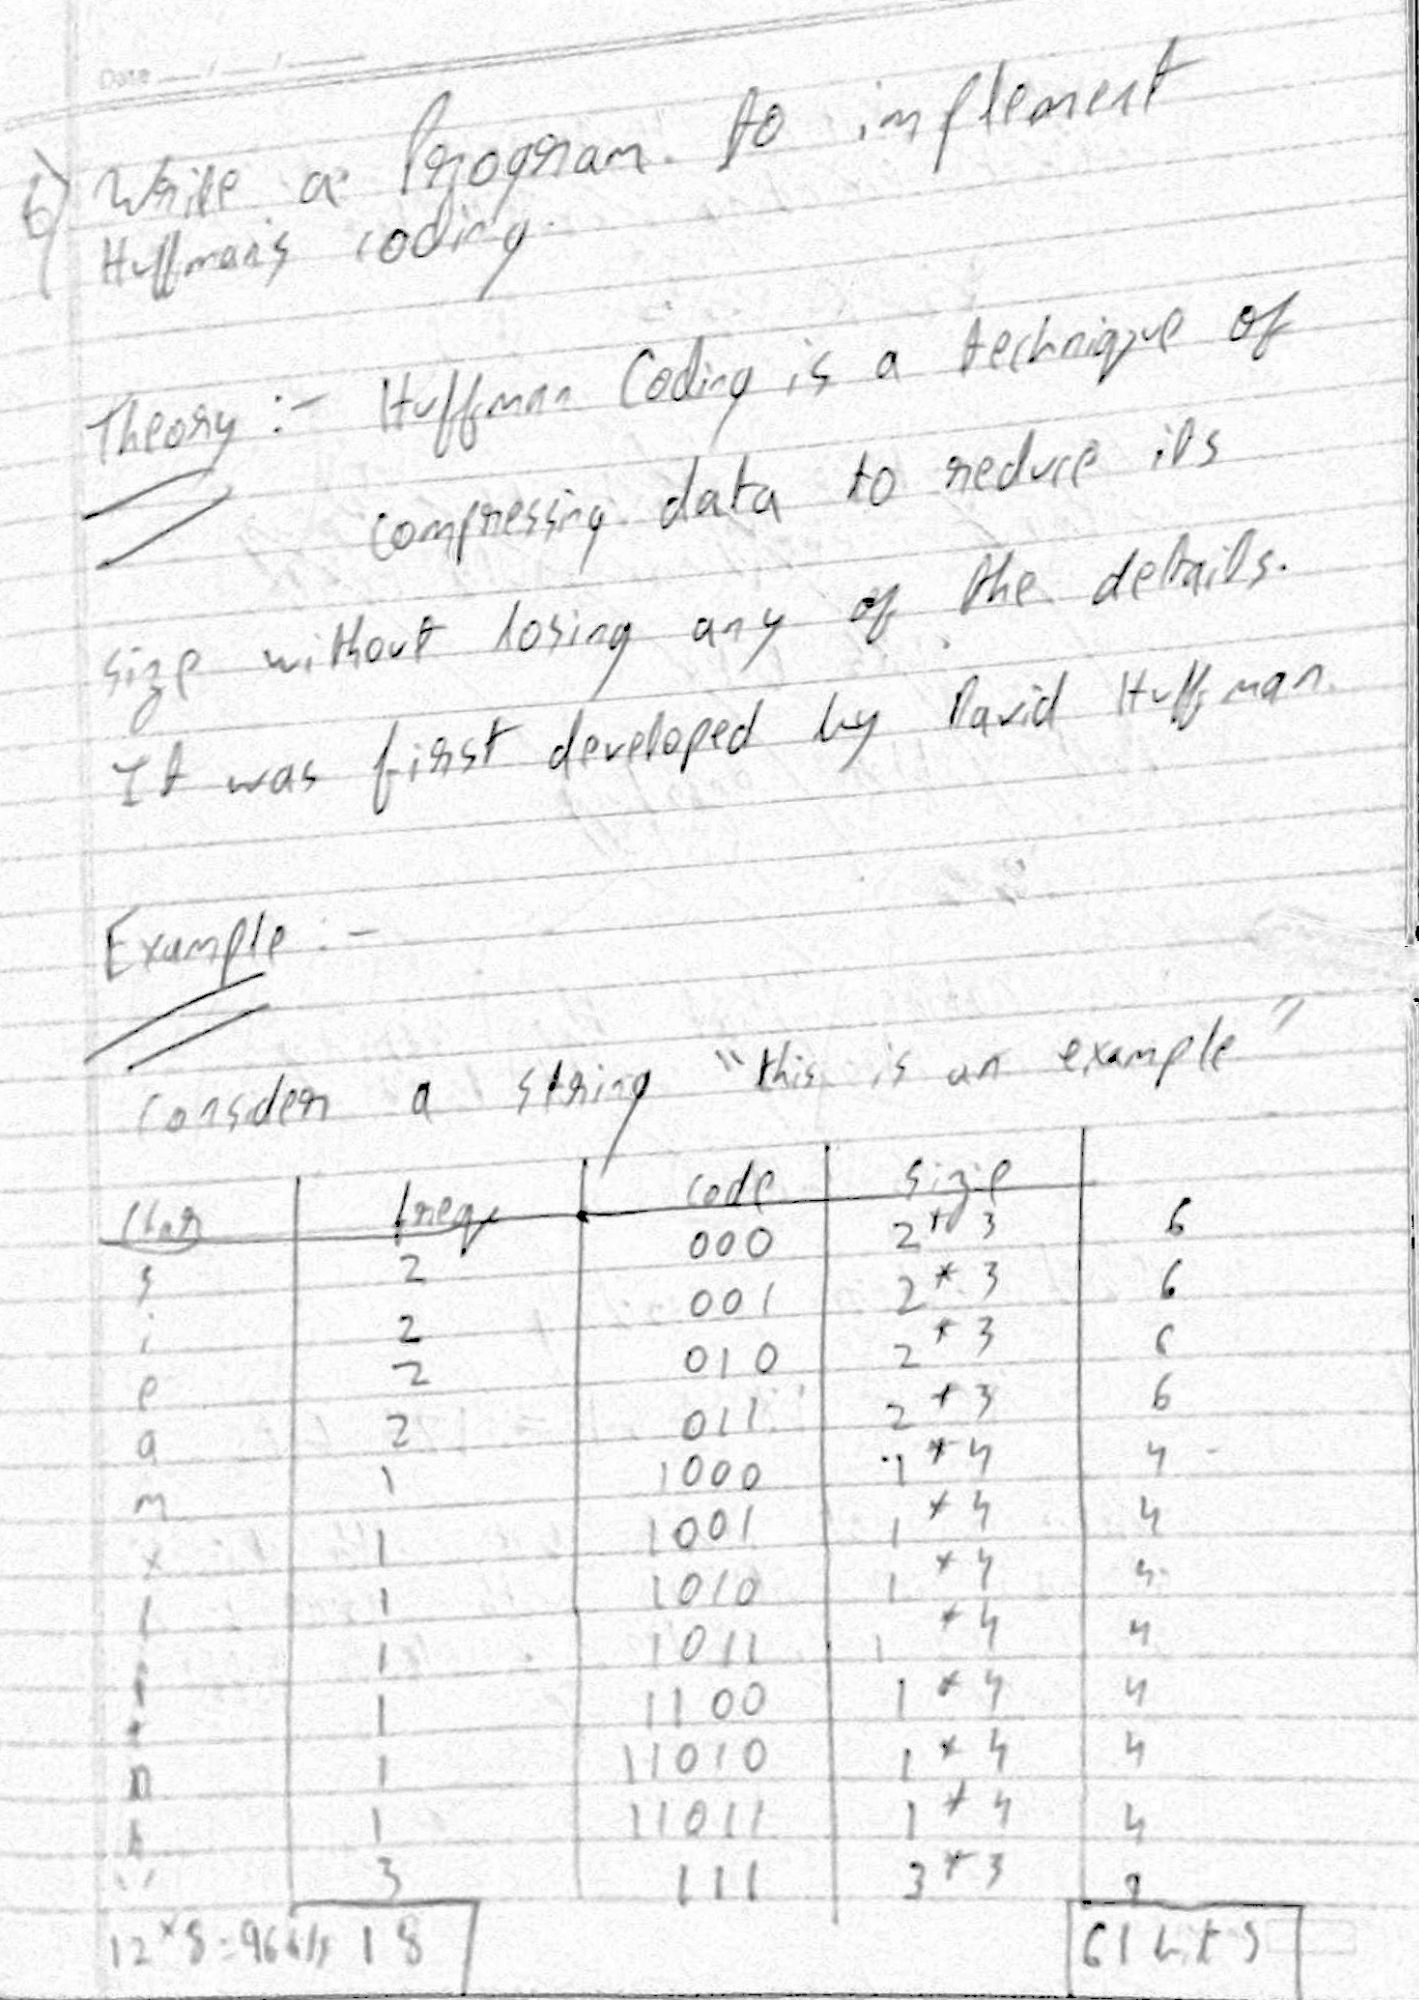 Date __/__/__
6) Write a Program to implement
Huffman's coding.
Theory :- Huffman Coding is a technique of
compressing data to reduce its
size without losing any of the details.
It was first developed by David Huffman.
Example :-
Consider a string "this is an example"
Char freq code size
s 2 000 2*3 6
i 2 001 2*3 6
e 2 010 2*3 6
a 2 011 2*3 6
m 1 1000 1*4 4
x 1 1001 1*4 4
l 1 1010 1*4 4
p 1 1011 1*4 4
t 1 1100 1*4 4
n 1 11010 1*4 4
h 1 11011 1*4 4
" 3 111 3*3 9
12*8=96 bits 18 61 bits